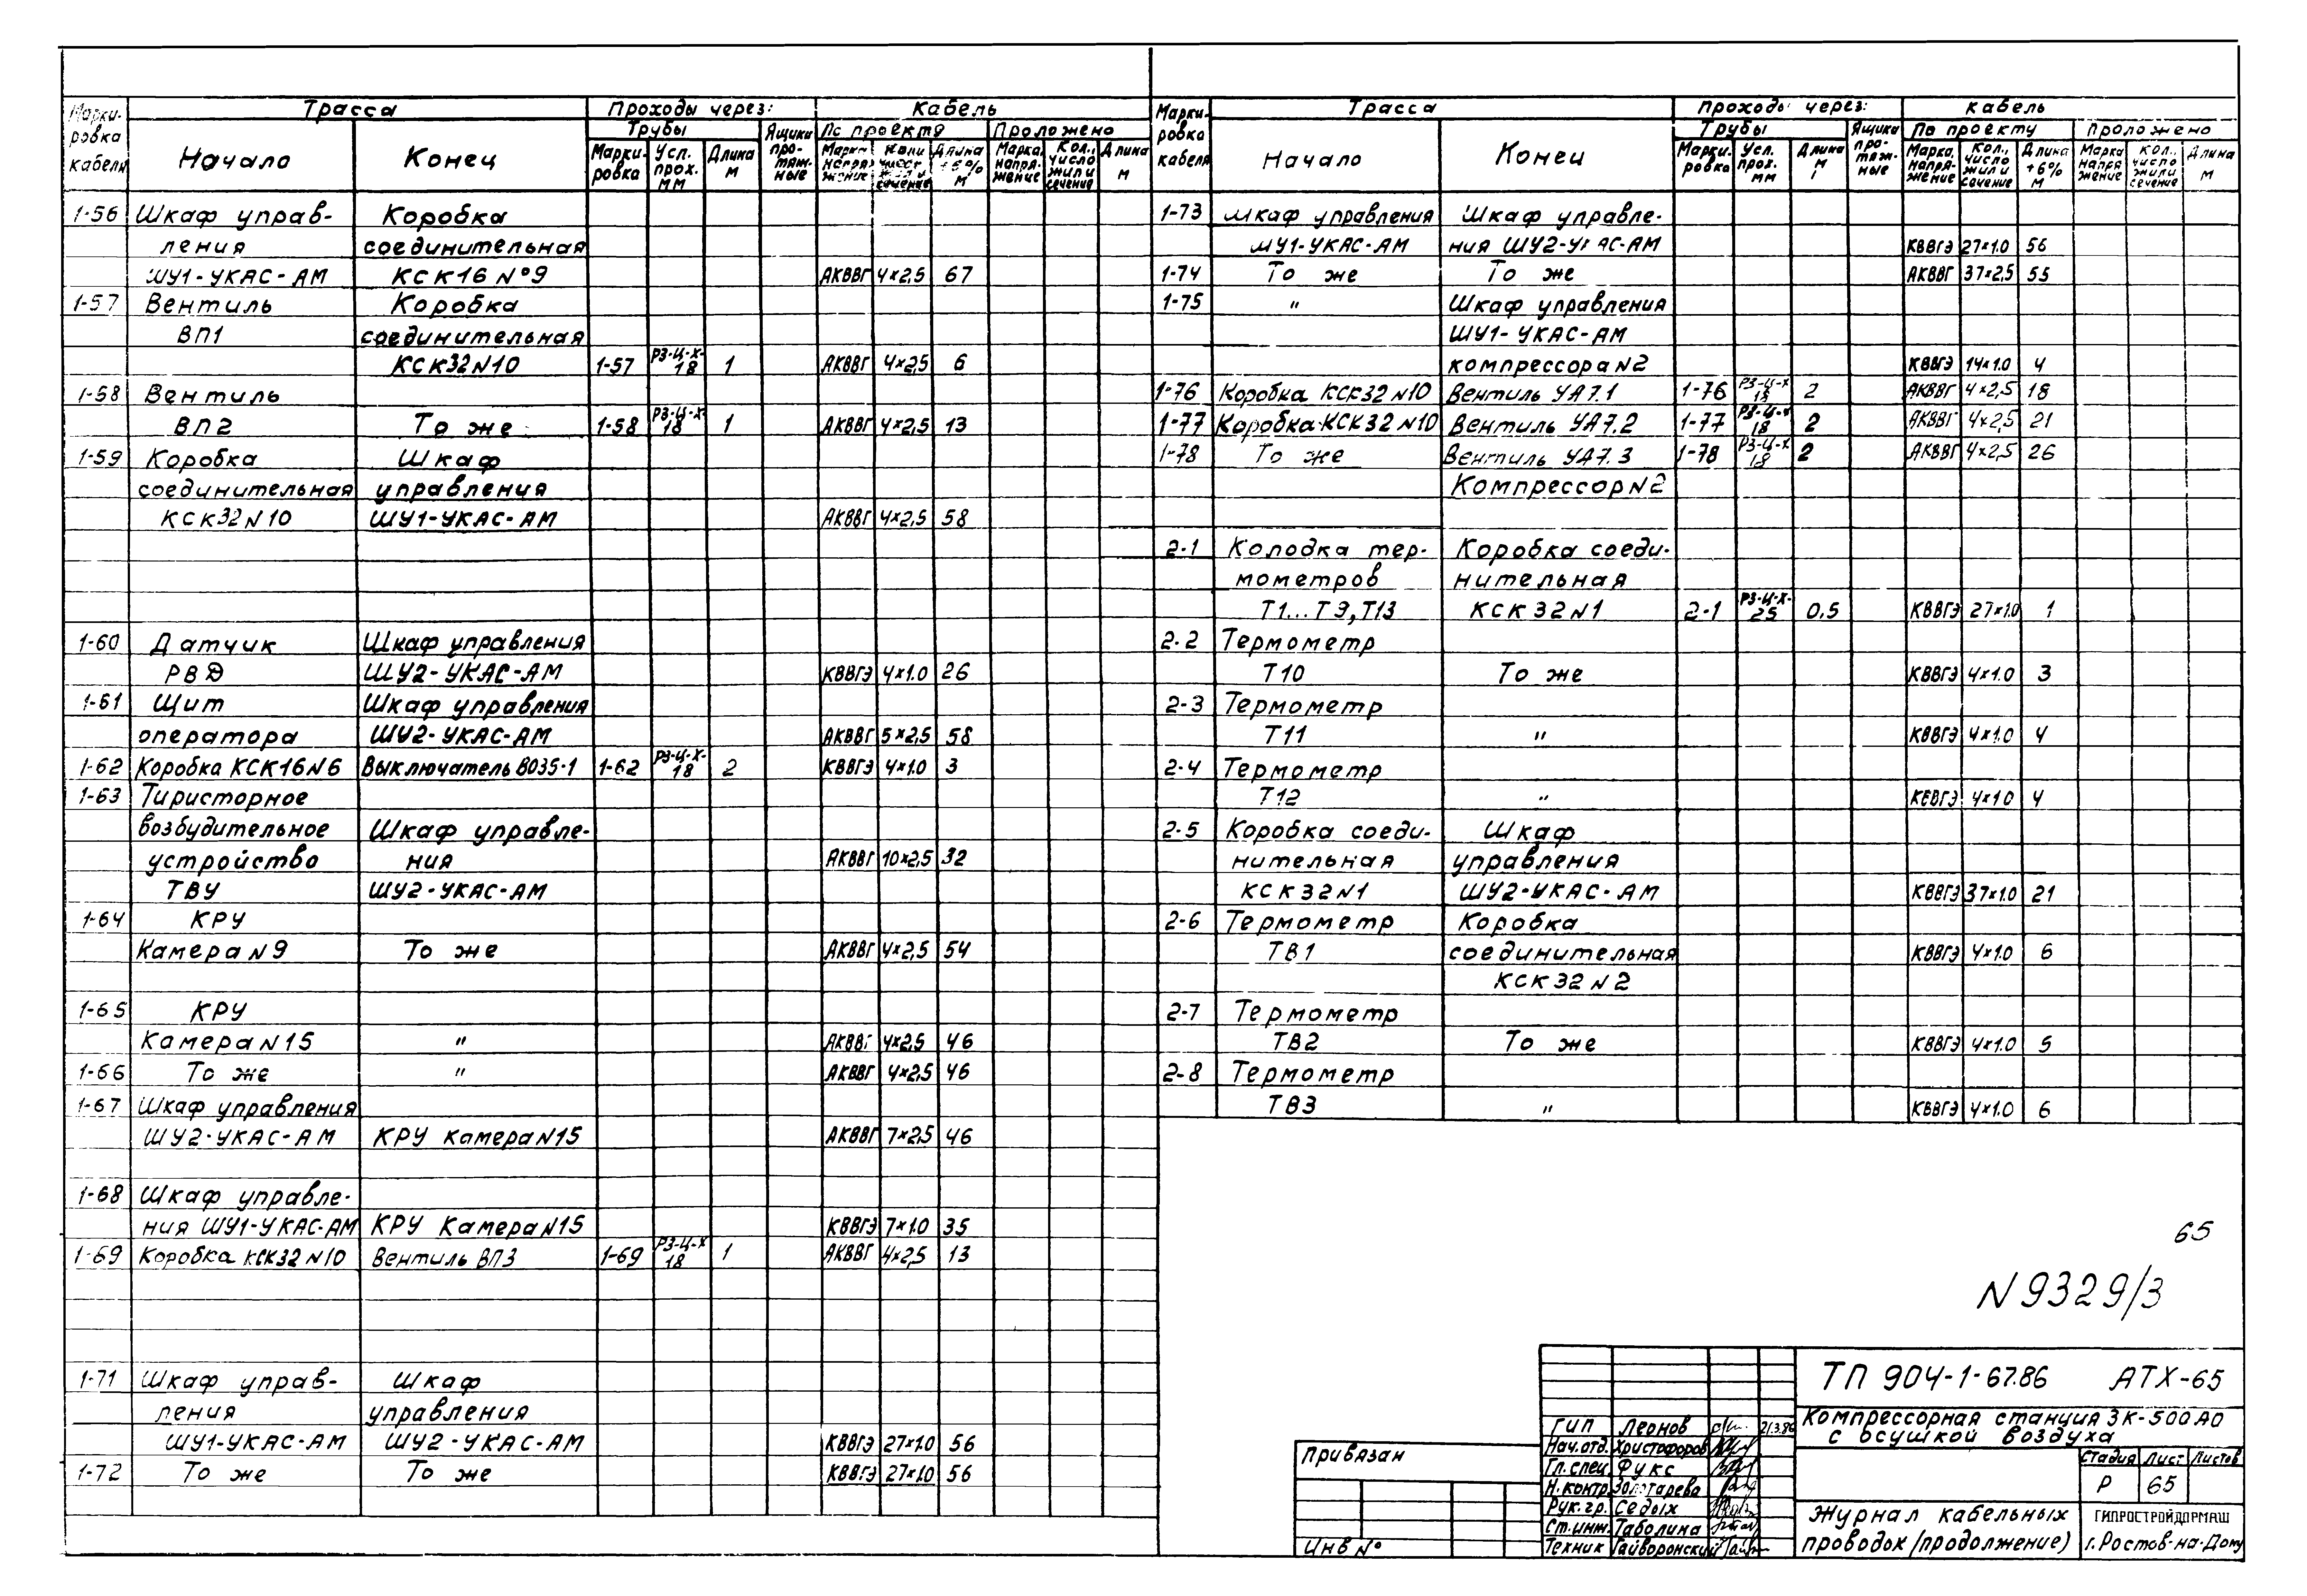 Маркировка кабеля | Трасса | Проходы через: | Кабель
Трубы | Ящики протяжные | По проекту | Проложено
Начало | Конец | Маркировка | Усл. прох. мм | Длина м | Марка, напряжение | Кол., число жил и сечение | Длина +6% м | Марка, напряжение | Кол., число жил и сечение | Длина м
1-56 Шкаф управ- Коробка
ления соединительная
ШУ1-УКАС-АМ КСК16 №9 АКВВГ 4×2,5 67
1-57 Вентиль Коробка
ВП1 соединительная
КСК32 N10 1-57 РЗ-Ц-Х-18 1 АКВВГ 4×2,5 6
1-58 Вентиль
ВП2 То же 1-58 РЗ-Ц-Х-18 1 АКВВГ 4×2,5 13
1-59 Коробка Шкаф
соединительная управления
КСК32 N10 ШУ1-УКАС-АМ АКВВГ 4×2,5 58
1-60 Датчик Шкаф управления
РВД ШУ2-УКАС-АМ КВВГЭ 4×1.0 26
1-61 Щит Шкаф управления
оператора ШУ2-УКАС-АМ АКВВГ 5×2,5 58
1-62 Коробка КСК16 N6 Выключатель ВОЗБ-1 1-62 РЗ-Ц-Х-18 2 КВВГЭ 4×1.0 3
1-63 Тиристорное
возбудительное Шкаф управле-
устройство ния АКВВГ 10×2,5 32
ТВУ ШУ2-УКАС-АМ
1-64 КРУ
Камера N9 То же АКВВГ 4×2,5 54
1-65 КРУ
Камера N15 " АКВВГ 4×2,5 46
1-66 То же " АКВВГ 4×2,5 46
1-67 Шкаф управления
ШУ2-УКАС-АМ КРУ Камера N15 АКВВГ 7×2,5 46
1-68 Шкаф управле-
ния ШУ1-УКАС-АМ КРУ Камера N15 КВВГЭ 7×1.0 35
1-69 Коробка КСК32 N10 Вентиль ВП3 1-69 РЗ-Ц-Х 18 1 АКВВГ 4×2,5 13
1-71 Шкаф управ- Шкаф
ления управления
ШУ1-УКАС-АМ ШУ2-УКАС-АМ КВВГЭ 27×1.0 56
1-72 То же То же КВВГЭ 27×1.0 56
Маркировка кабеля | Трасса | Проходы через: | Кабель
Трубы | Ящики протяжные | По проекту | Проложено
Начало | Конец | Маркировка | Усл. прох. мм | Длина м | Марка, напряжение | Кол., число жил и сечение | Длина +6% м | Марка напряжение | Кол., число жил и сечение | Длина м
1-73 Шкаф управления Шкаф управле-
ШУ1-УКАС-АМ ния ШУ2-УКАС-АМ КВВГЭ 27×1.0 56
1-74 То же То же АКВВГ 37×2,5 55
1-75 " Шкаф управления
ШУ1-УКАС-АМ
компрессора N2 КВВГЭ 14×1.0 4
1-76 Коробка КСК32 N10 Вентиль УА7.1 1-76 РЗ-Ц-Х 18 2 АКВВГ 4×2,5 18
1-77 Коробка КСК32 N10 Вентиль УА7.2 1-77 РЗ-Ц-Х 18 2 АКВВГ 4×2,5 21
1-78 То же Вентиль УА7.3 1-78 РЗ-Ц-Х 18 2 АКВВГ 4×2,5 26
Компрессор N2
2-1 Колодка тер- Коробка соеди-
мометров нительная
Т1...Т9, Т13 КСК 32 N1 2-1 РЗ-Ц-Х-25 0,5 КВВГЭ 27×1.0 1
2-2 Термометр
Т10 То же КВВГЭ 4×1.0 3
2-3 Термометр
Т11 " КВВГЭ 4×1.0 4
2-4 Термометр
Т12 " КВВГЭ 4×1.0 4
2-5 Коробка соеди- Шкаф
нительная управления
КСК32 N1 ШУ2-УКАС-АМ КВВГЭ 37×1.0 21
2-6 Термометр Коробка
ТВ1 соединительная КВВГЭ 4×1.0 6
КСК 32 N2
2-7 Термометр
ТВ2 То же КВВГЭ 4×1.0 5
2-8 Термометр
ТВ3 " КВВГЭ 4×1.0 6
65
N 9329/3
ТП 904-1-67.86 АТХ-65
Компрессорная станция 3К-500АО
с осушкой воздуха
Привязан
Инв №
ГИП Леонов 21.3.86
Нач.отд. Христофоров
Гл.спец. Фукс
Н.контр. Золотарева
Рук.гр. Седых
Ст.инж. Таболина
Техник Гайворонский
Стадия Лист Листов
Р 65
Журнал кабельных
проводок (продолжение)
ГИПРОСТРОЙДОРМАШ
г. Ростов-на-Дону